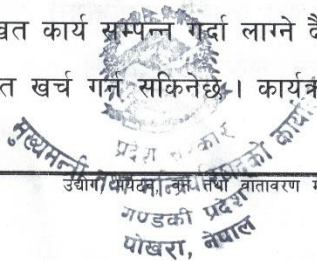 खित कार्य सम्पन्न गर्दा लाग्ने दै
त खर्च गर्न सकिनेछ । कार्यक्र
प्रदेश सरकार
मुख्यमन्त्री तथा मन्त्रिपरिषद्को कार्या
उद्योग, पर्यटन, वन तथा वातावरण म
गण्डकी प्रदेश
पोखरा, नेपाल